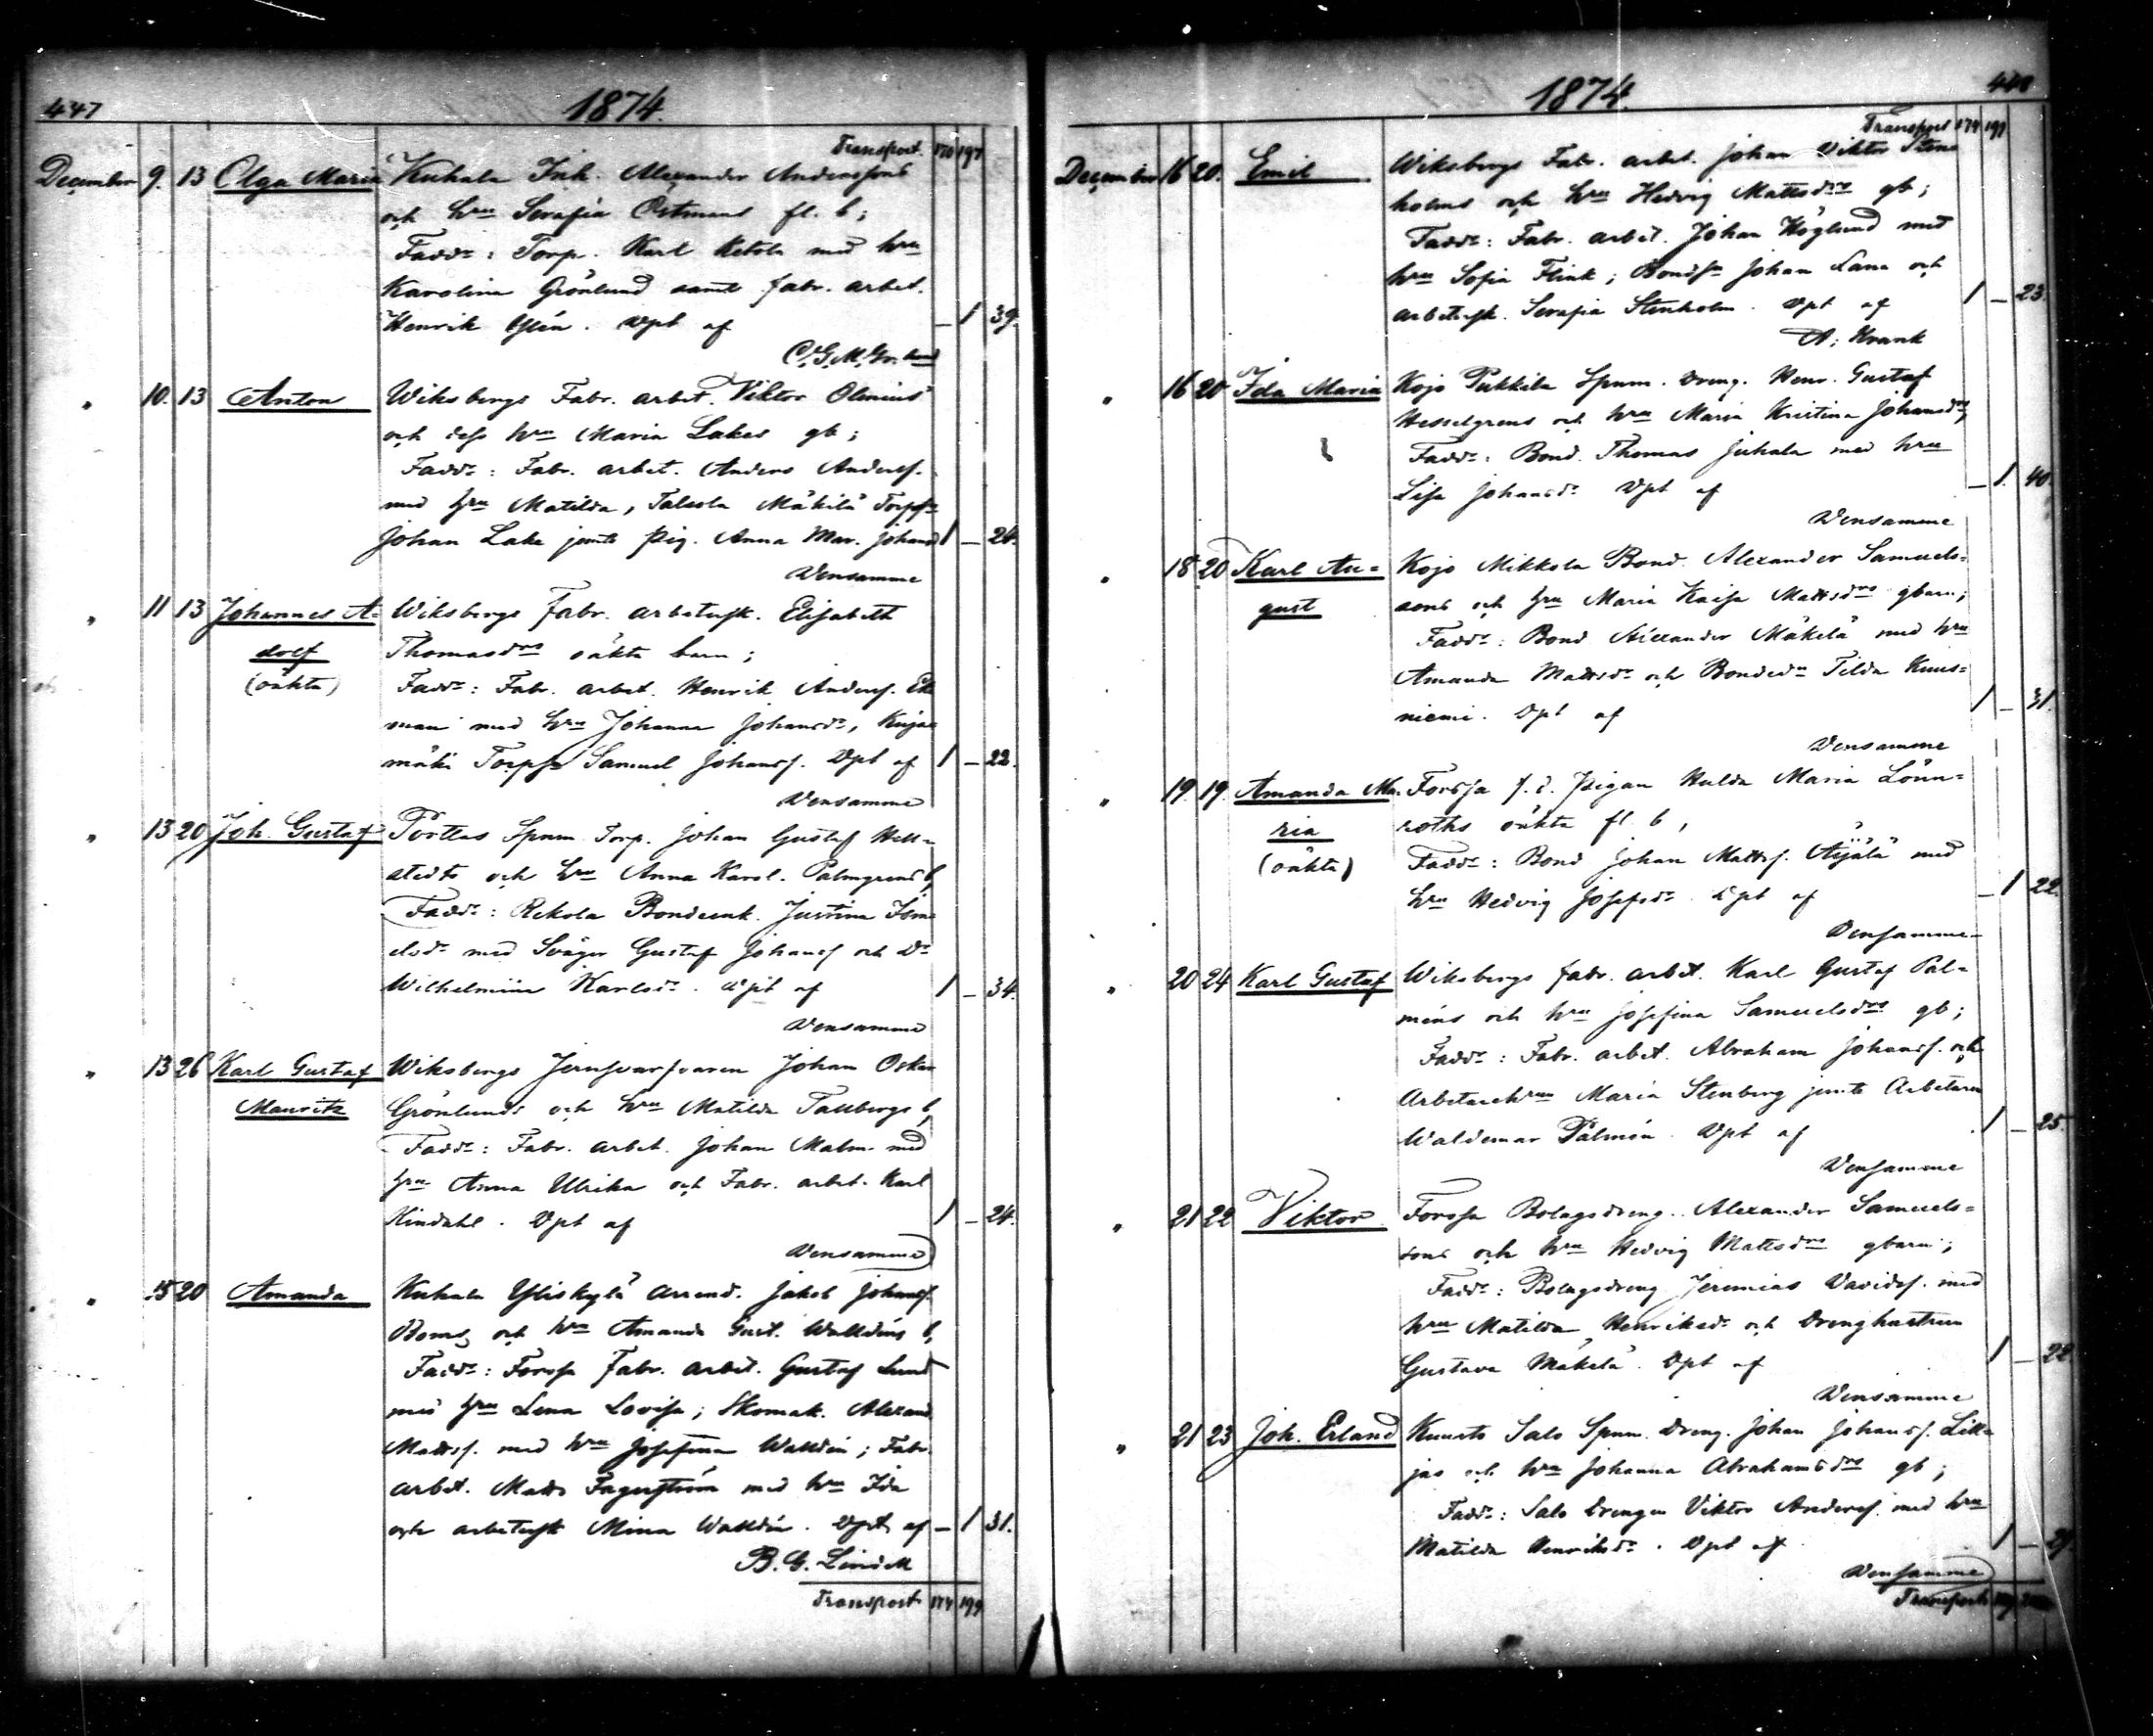 447
1874.
Transport. 170 197
December 9. 13 Olga Maria Kuhala Inh. Alexander Anderssons
och hru Serafia Östmans fl. b;
Faddr: Torp. Karl Ketola med hru
Karolina Grönlund samt fabr. arbet.
Henrik Ylén. Dpt af – 1 39.
C.G.M.
" 10. 13 Anton Wiksbergs Fabr. arbet. Viktor Olenius
och dess hru Maria Lakes gb;
Faddr: Fabr. arbet. Anders Andersf.
med hru Matilda, Talsola Mäkilä Torpsn
Johan Lake jemte pig. Anna Mar. Johansd 1 – 24.
Densamme
" 11 13 Johannes A= Wiksbergs Fabr. arbetersk. Elisabeth
dolf Thomasdrs oäkta barn;
(oäkta) Faddr: Fabr. arbet. Henrik Andersf. Ek
man med hru Johanna Johansdr, Kuja
mäki Torpsn Samuel Johansf. Dpt af 1 – 22.
Densamme
" 13 20 Joh. Gustaf Torttas Spnm Torp. Johan Gustaf Hell=
stedts och hru Anna Karol. Palmgrens b,
Faddr: Rekola Bondeenk. Justina Isra
elsdr med Svåger Gustaf Johansf och Dr
Wilhelmina Karlsdr. Dpt af 1 – 34.
Densamme
" 13 26 Karl Gustaf Wiksbergs Jernsvarfvaren Johan Oskar
Mauritz Grönlunds och hru Matilda Tallbergs b,
Faddr: Fabr. arbet. Johan Malm med
hru Anna Ulrika och Fabr. arbet. Karl
Kindahl. Dpt af 1 – 24.
Densamme
" 15 20 Amanda Kuhala Yliskylä arrend. Jakob Johansf.
Boms och hru Amanda Gust. Walldéns b,
Faddr: Forssa Fabr. arbet. Gustaf Lund
med hru Lena Lovisa; Skomak. Alexand.
Mattsf. med hru Josefina Walldén; Fabr.
arbet. Matts Fagerström med hru Ida
och arbetersk Mina Walldén. Dpt af – 1 31.
B. G. Lindell
Transport 174 199
448
1874.
Transport 174 199
December 16 20. Emil Wiksbergs Fabr. arbet. Johan Viktor Sten
holms och hru Hedvig Mattsdrs gb;
Faddr: Fabr. arbet. Johan Höglund med
hru Sofia Flink; Bondsn Johan Lana och
arbetersk. Serafia Stenholm. Dpt af 1 – 23.
A. Krank
" 16 20 Ida Maria Kojo Pukkila Spnm. dreng. Henr. Gustaf
Hesselgrens och hru Maria Kristina Johansdrs,
Faddr: Bond. Thomas Juhala med hru
Lisa Johansdr Dpt af – 1. 40.
Densamme
" 18 20 Karl Au= Kojo Mikkola Bond. Alexander Samuels=
gust sons och hru Maria Kaisa Mattsdrs gbarn;
Faddr: Bond Alexander Mäkelä med hru
Amanda Mattsdr och Bondedr Tilda Kuus=
niemi. Dpt af 1 – 31.
Densamme
" 19. 19. Amanda Ma= Forssa f. d. pigan Hulda Maria Lönn=
ria roths oäkta fl. b,
(oäkta) Faddr: Bond Johan Mattsf. Äijälä med
hru Hedvig Josefsdr. Dpt af – 1 22.
Densamme
" 20 24 Karl Gustaf Wiksbergs fabr. arbet. Karl Gustaf Pal=
méns och hru Josefina Samuelsdrs gb;
Faddr: Fabr. arbet. Abraham Johansf. och
Arbetarehrun Maria Stenberg jemte Arbetaren
Waldemar Palmén. Dpt af 1 – 25.
Densamme
" 21 22 Viktor Forssa Bolagsdreng. Alexander Samuels=
sons och hru Hedvig Mattsdrs gbarn;
Faddr: Bolagsdreng Jeremias Davidsf. med
hru Matilda Henriksdr och Drenghustrun
Gustava Mäkelä. Dpt af 1 – 22
Densamme
" 21 23 Joh. Erland Kuusto Salo Spnm. dreng. Johan Johansf. Lill=
jas och hru Johanna Abrahamsdrs gb;
Faddr: Salo Drengen Viktor Andersf. med hru
Matilda Henriksdr. Dpt af 1 –
Densamme
Transport